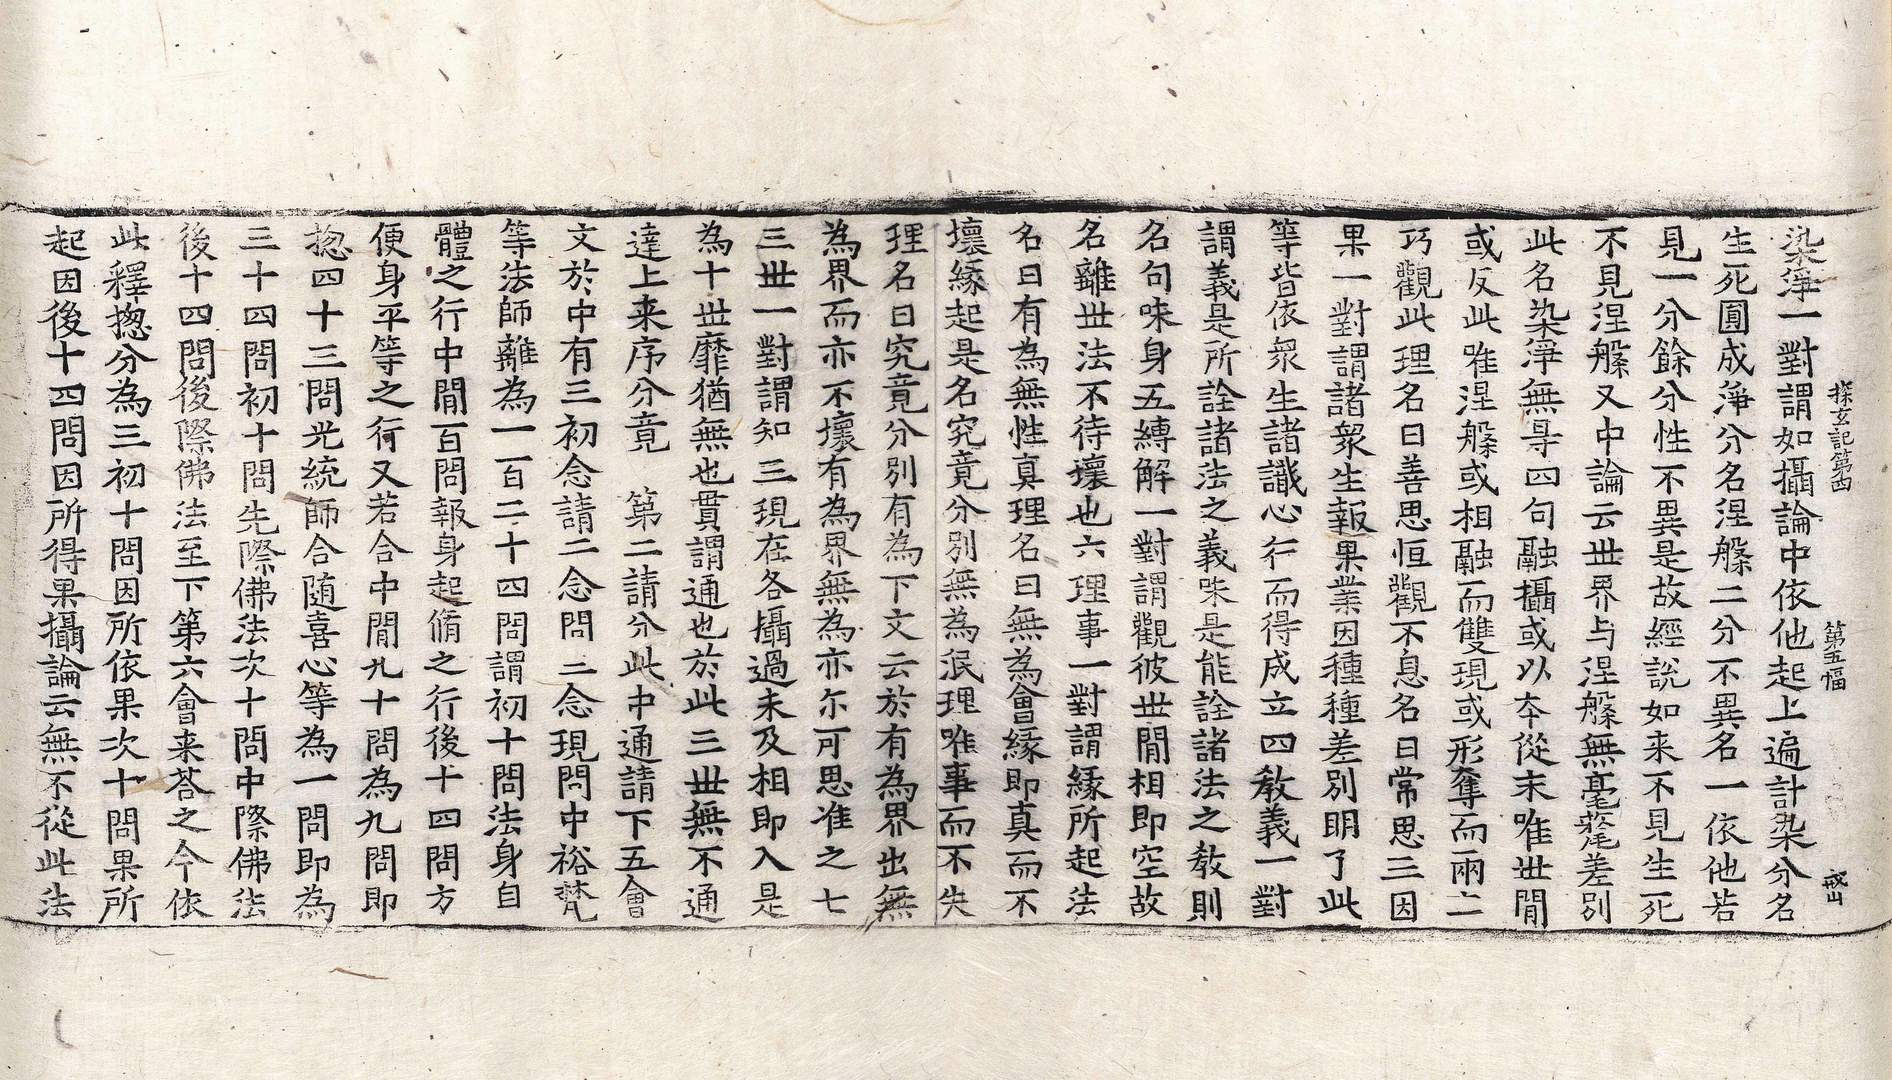 探玄記第四　第五幅　戒山
染淨一對謂如攝論中依他起上遍計染分名
生死圓成淨分名涅槃二分不異名一依他若
見一分餘分性不異是故經說如来不見生死
不見涅槃又中論云世界与涅槃無毫氂差別
此名染淨無㝵四句融攝或以夲從末唯世閒
或反此唯涅槃或相融而雙現或形奪而兩亡
巧觀此理名曰善思恒觀不息名曰常思三因
果一對謂諸衆生報果業因種種差別明了此
等皆依衆生諸識心行而得成立四教義一對
謂義是所詮諸法之義味是能詮諸法之教則
名句味身五縛解一對謂觀彼世閒相即空故
名離世法不待壞也六理事一對謂緣所起法
名曰有為無性真理名曰無為會緣即真而不
壞緣起是名究竟分別無為泯理唯事而不失
理名曰究竟分別有為下文云於有為界出無
為界而亦不壞有為界無為亦尓可思准之七
三世一對謂知三現在各攝過未及相即入是
為十世靡猶無也貫謂通也於此三世無不通
達上来序分竟　第二請分此中通請下五會
文於中有三初念請二念問三念現問中裕梵
等法師離為一百二十四問謂初十問法身自
體之行中閒百問報身起脩之行後十四問方
便身平等之行又若合中閒九十問為九問即
揔四十三問光統師合随喜心等為一問即為
三十四問初十問先際佛法次十問中際佛法
後十四問後際佛法至下第六會来荅之今依
此釋揔分為三初十問因所依果次十問果所
起因後十四問因所得果攝論云無不從此法